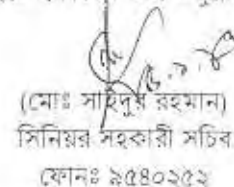 ৫.১.
(মোঃ সাইদুর রহমান)
সিনিয়র সহকারী সচিব
ফোনঃ ৯৫৪০২৫২